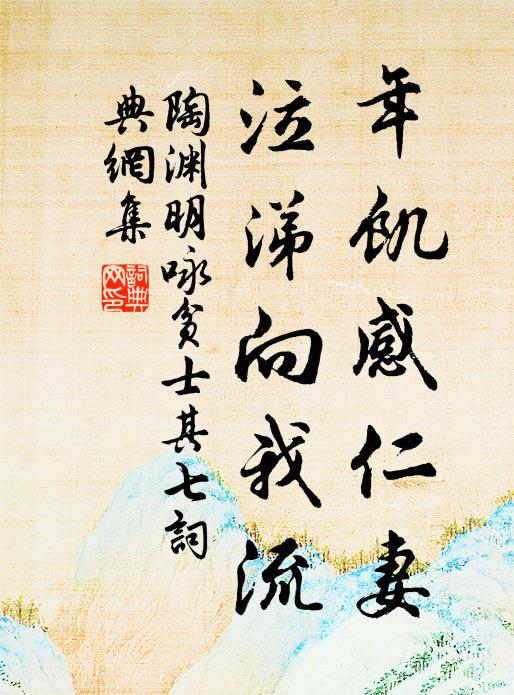 年飢感仁妻
泣涕向我流
陶渊明咏贫士其七詞
典網集
詞典
网印